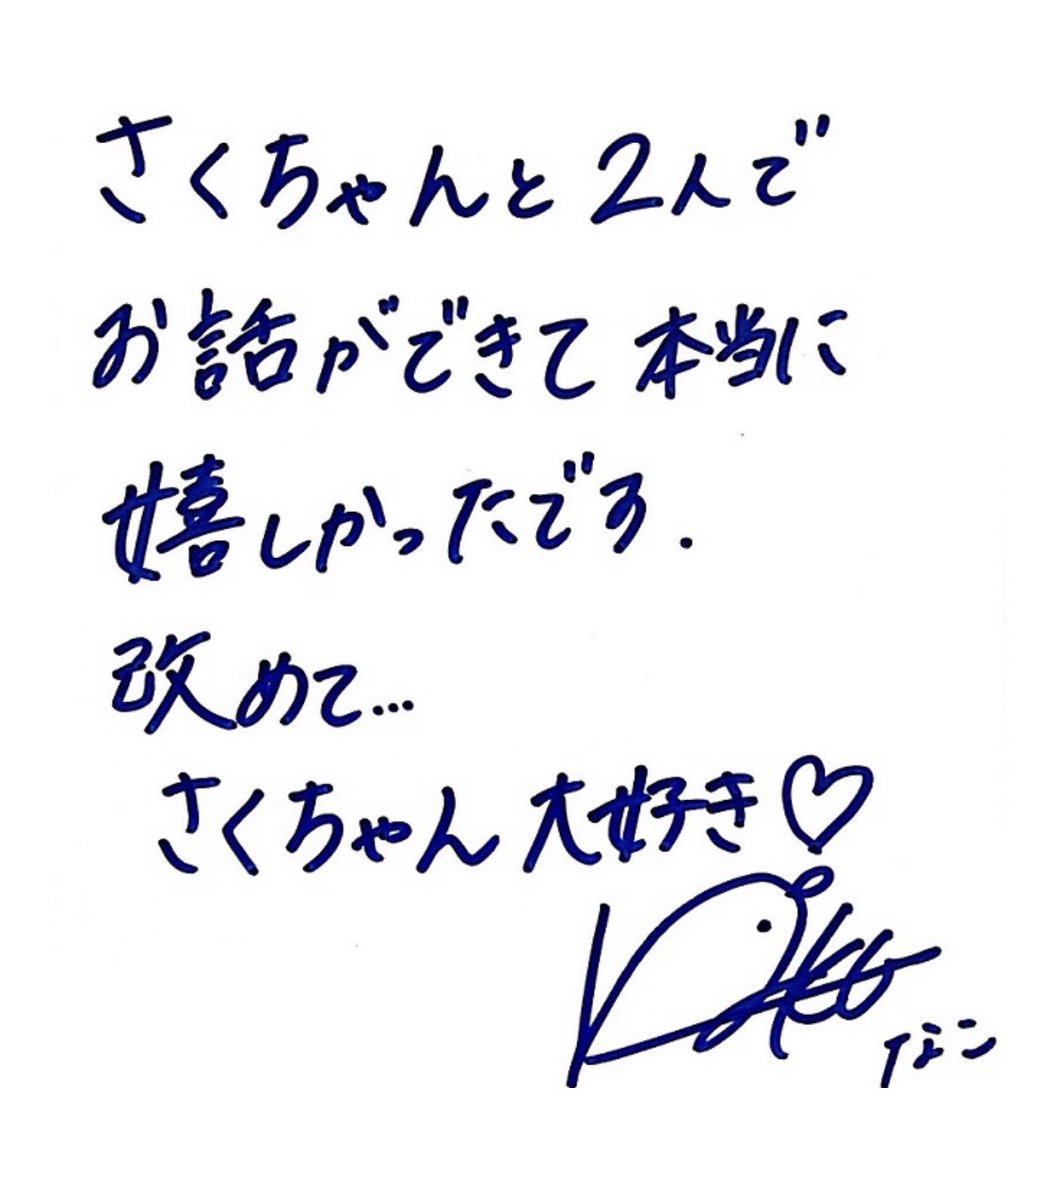 さくちゃんと2人で
お話ができて本当に
嬉しかったです.
改めて...
さくちゃん大好き♡
なこ